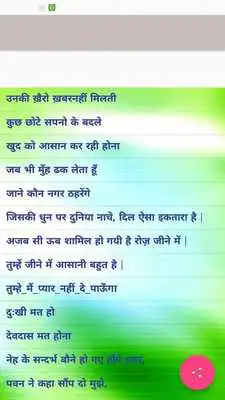 उनकी ख़ैरो ख़बरनहीं मिलती
कुछ छोटे सपनो के बदले
खुद को आसान कर रही होना
जब भी मुँह ढक लेता हूँ
जाने कौन नगर ठहरेंगे
जिसकी धुन पर दुनिया नाचे, दिल ऐसा इकतारा है |
अजब सी ऊब शामिल हो गयी है रोज़ जीने में |
तुम्हें जीने में आसानी बहुत है |
तुम्हे_मैं_प्यार_नहीं_दे_पाऊँगा
दुःखी मत हो
देवदास मत होना
नेह के सन्दर्भ बौने हो गए होंगे मगर,
पवन ने कहा साँप दो मुझे,